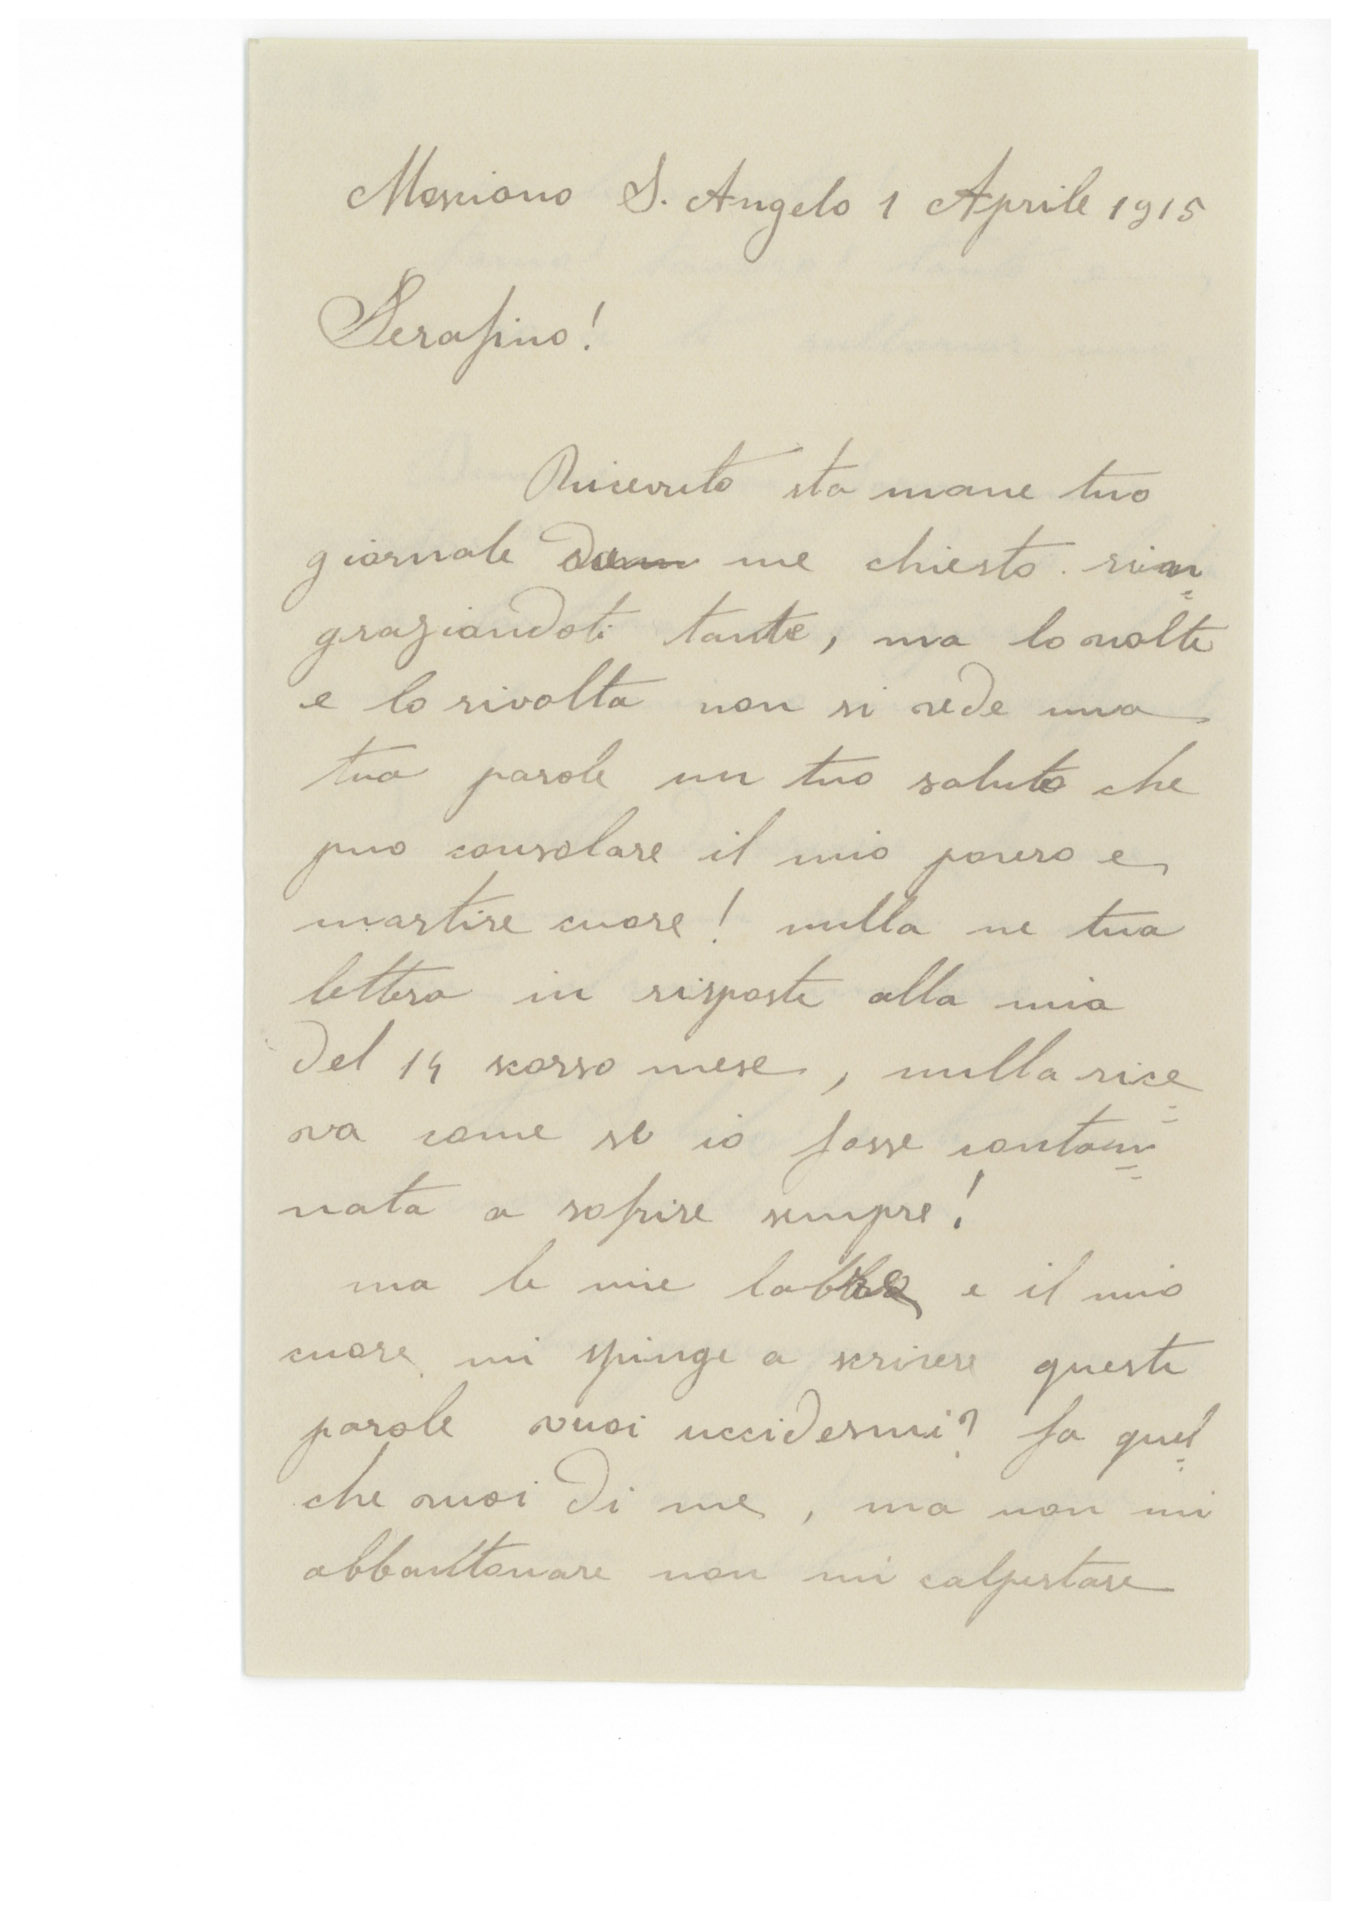 Mosciano S. Angelo 1 Aprile 1915
Serafino!
Ricevuto sta mane tuo
giornale me chiesto. rin
graziandoti tante, ma lo volte
e lo rivolta non si vede una
tua parole un tuo saluto che
puo consolare il mio povero e
martire cuore! nulla ne tua
lettera in risposte alla mia
del 14 scorso mese, nulla rice
va come se io fosse contam
nata a sofrire sempre!
ma le mie labbra e il mio
cuore mi spinge a scrivere queste
parole vuoi uccidermi? fa quel
che vuoi di me, ma non mi
abbantonare non mi calpestare